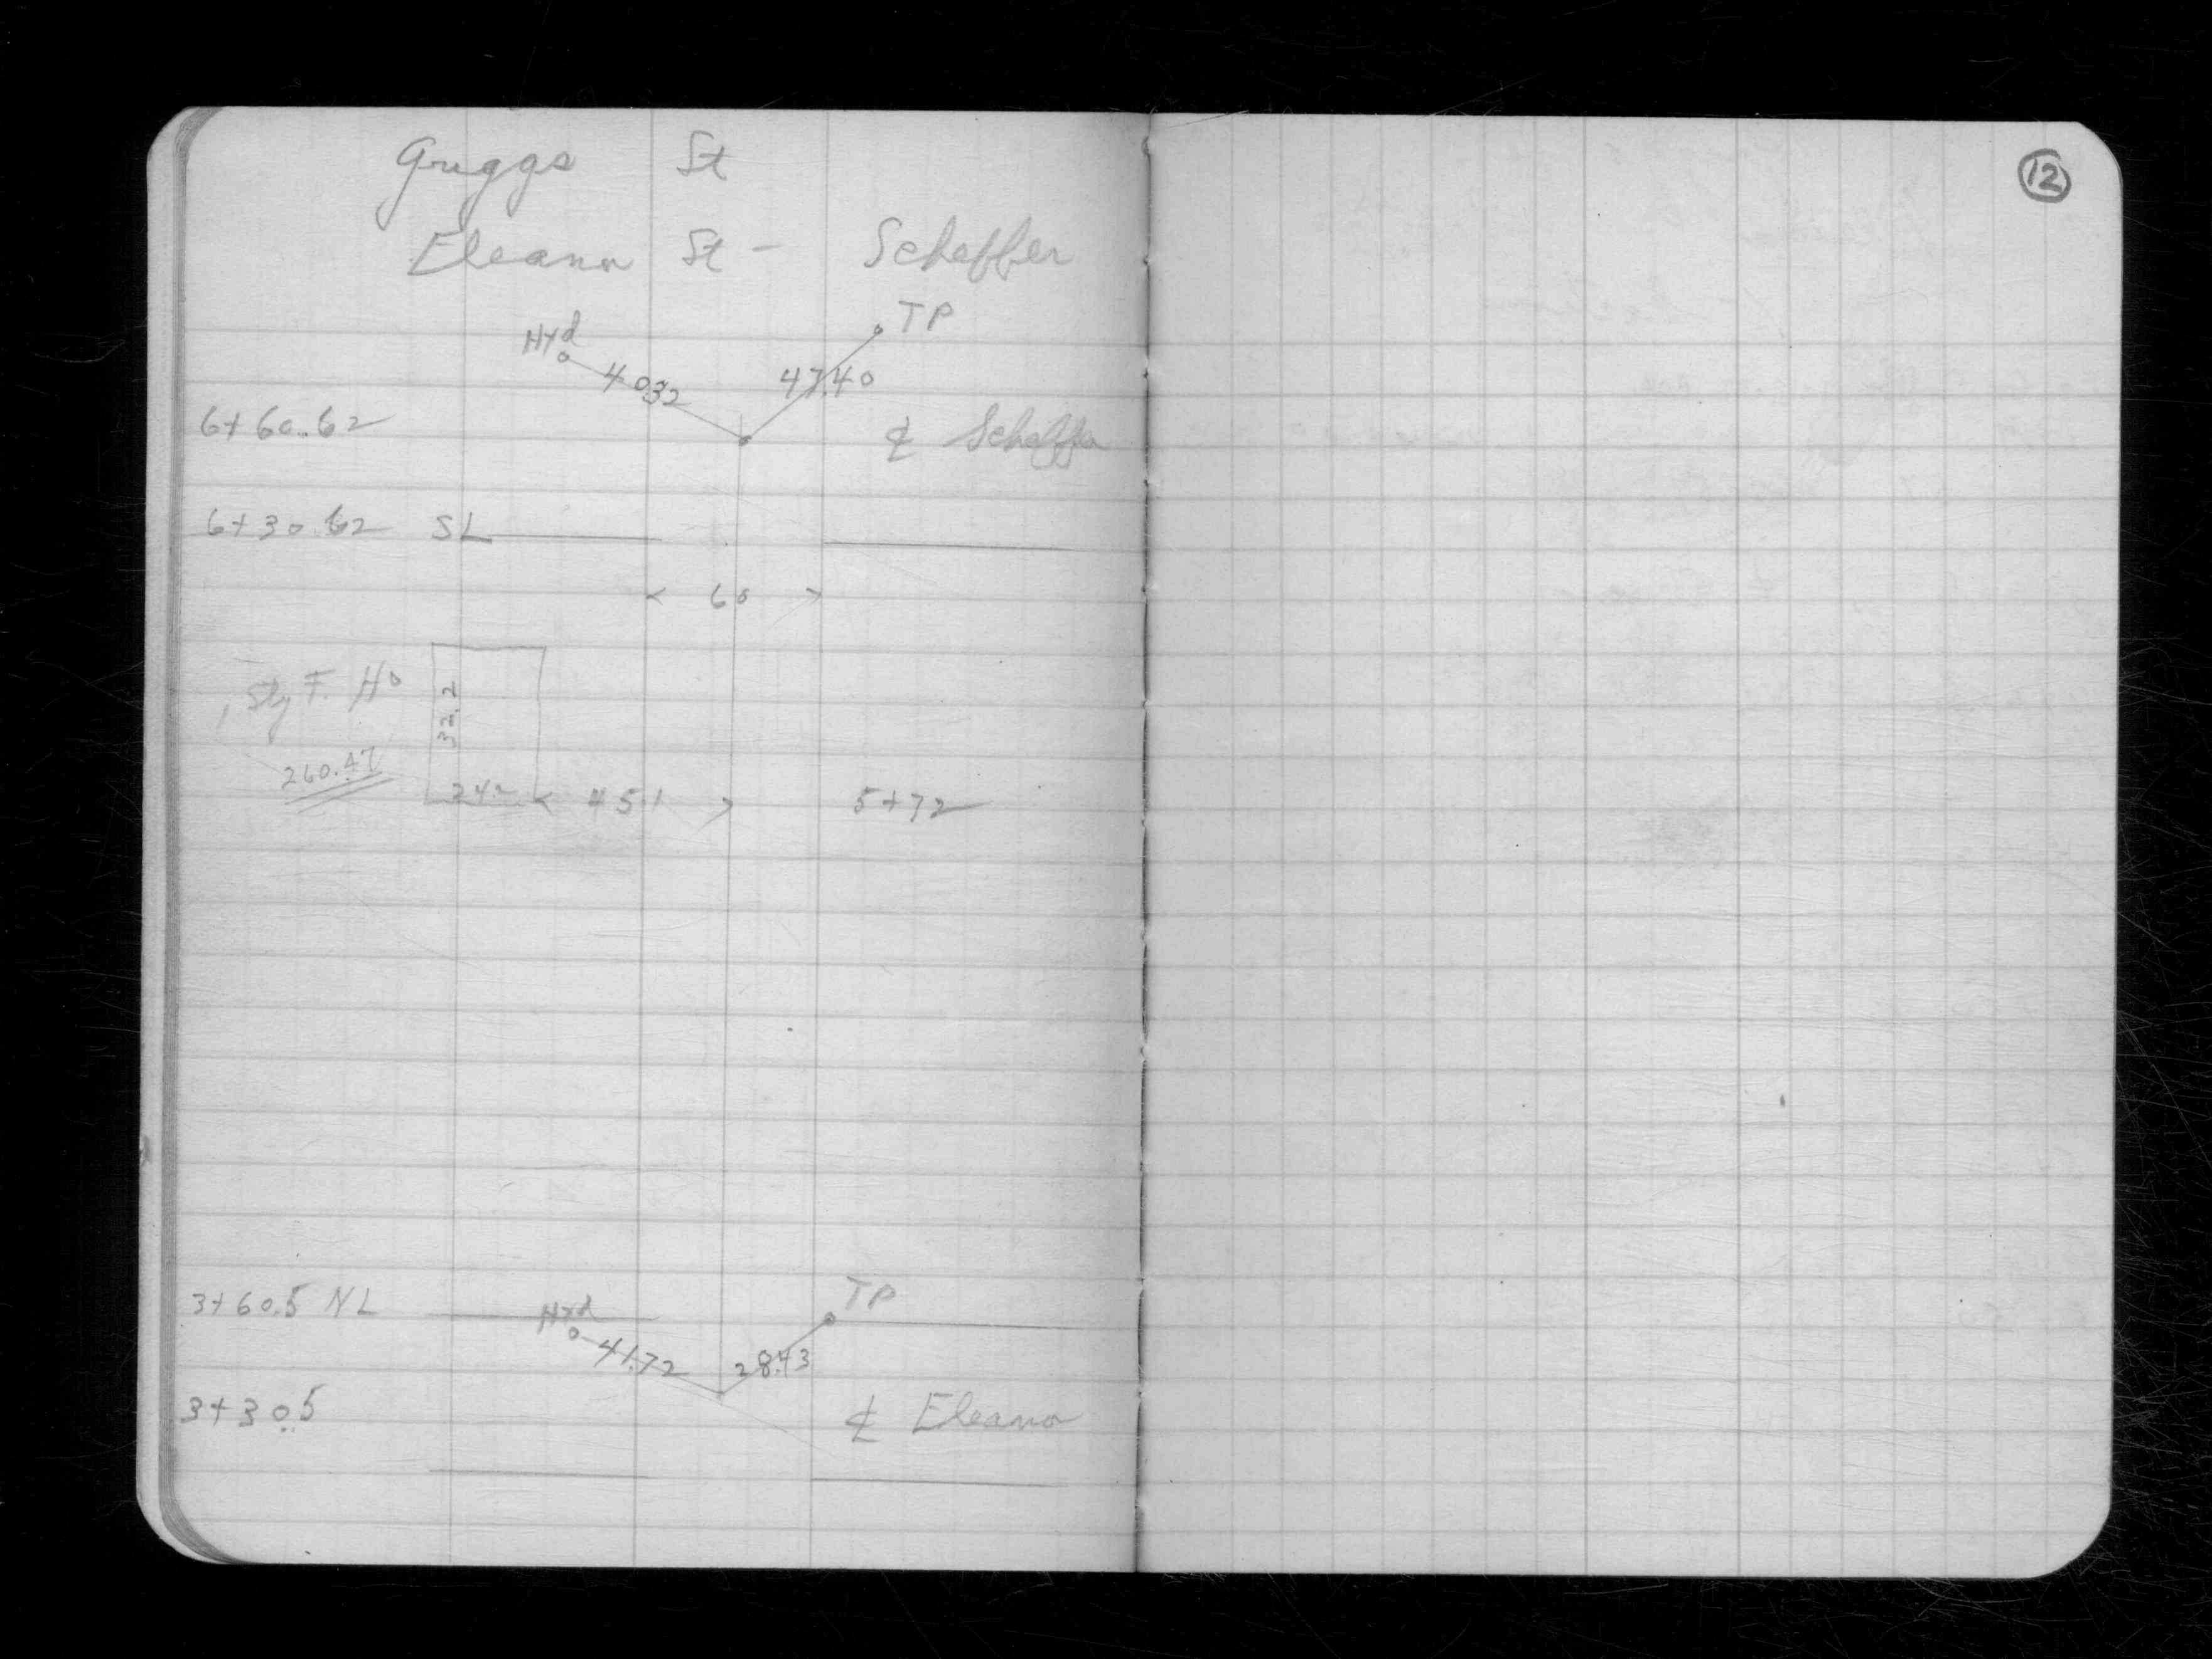 Griggs St
12
Eleanor St - Scheffer
TP
Hyd
40.32 47.40
6+60.62 ℄ Scheffer
6+30.62 SL
< 60 >
1 Sty F. Ho
32.2
260.47
24.2 < 45.1 > 5+72
3+60.5 NL Hyd TP
41.72 28.43
3+30.5 ℄ Eleanor